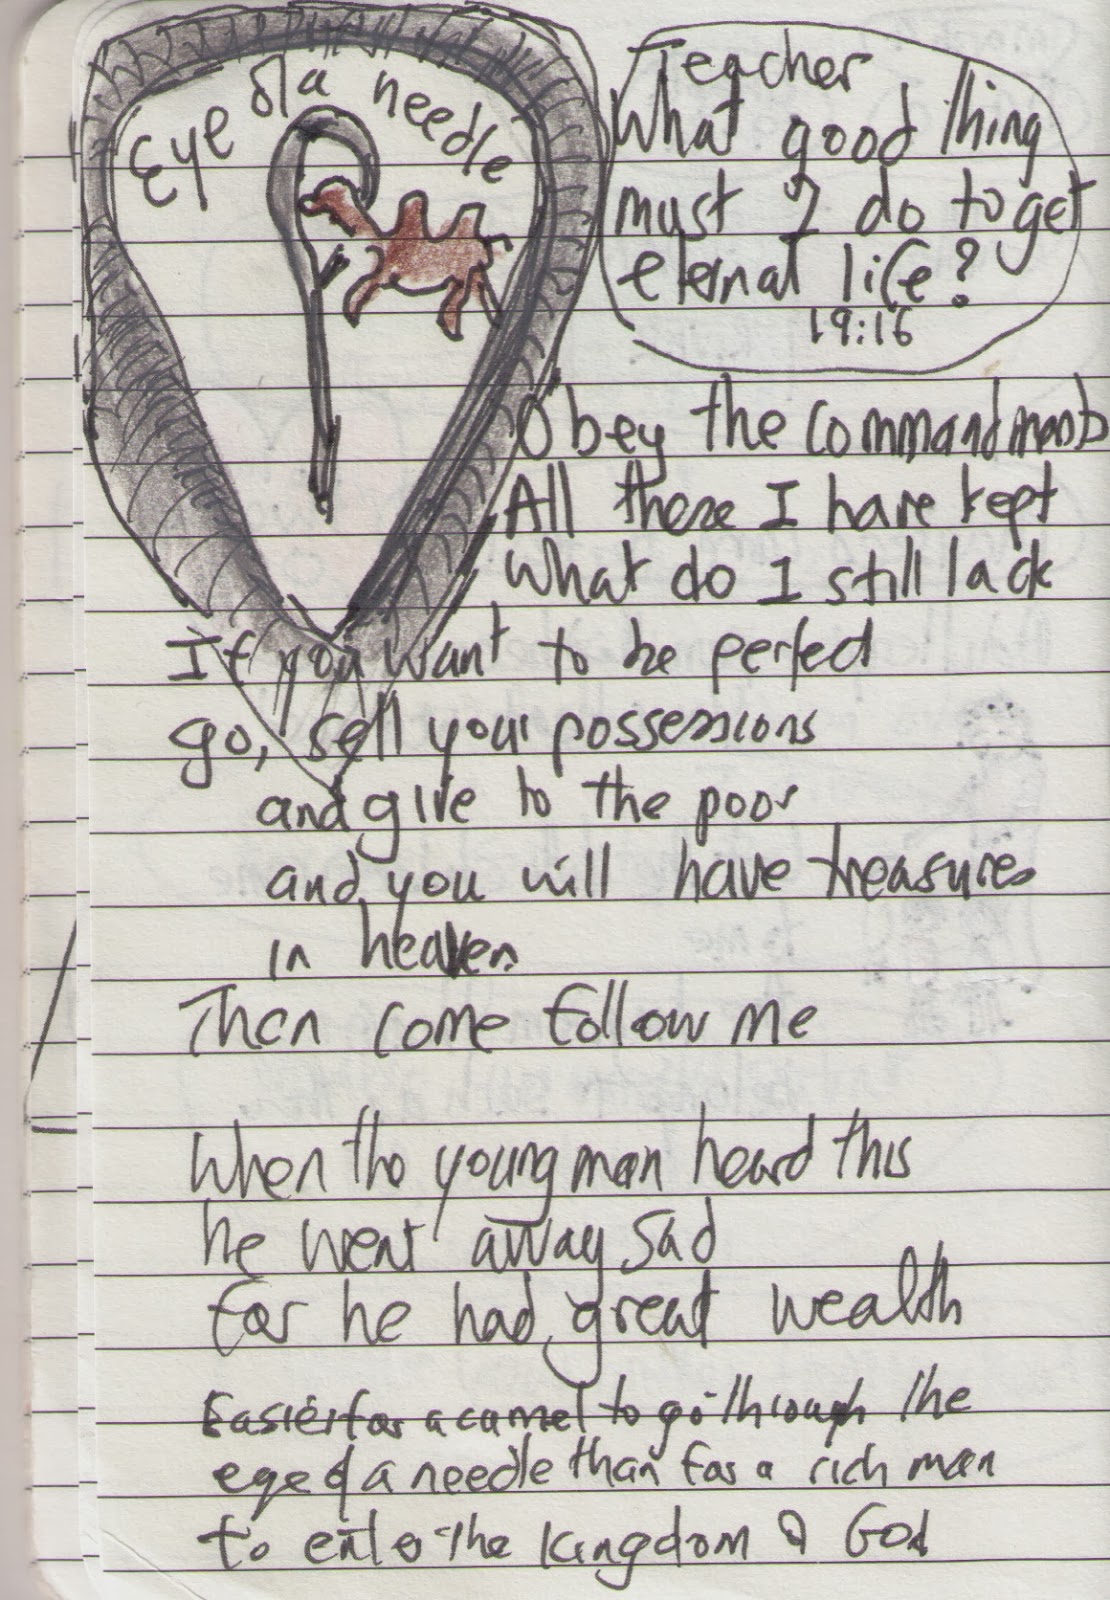 Eye of a needle
Teacher
What good thing
must I do to get
eternal life?
19:16
Obey the commandments
All these I have kept
What do I still lack
If you want to be perfect
go, sell your possessions
and give to the poor
and you will have treasures
in heaven
Then come follow me
When the young man heard this
he went away sad
for he had great wealth
Easier for a camel to go through the
eye of a needle than for a rich man
to enter the kingdom of God